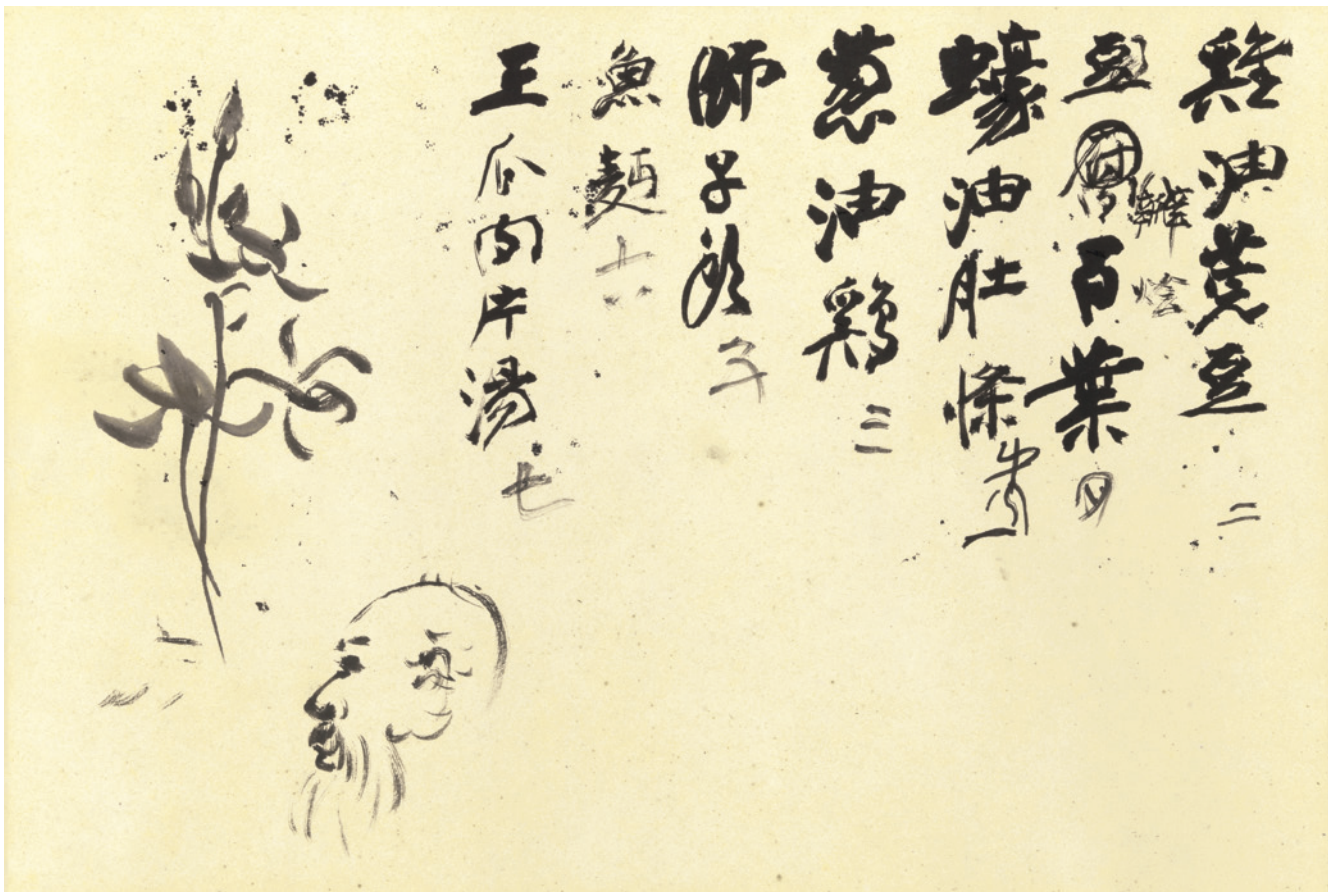 雞油豆 二
豆瓣燴百葉 四
蠔油肚條 一
葱油鷄 三
獅子頭 五
魚麵 六
王瓜肉片湯 七